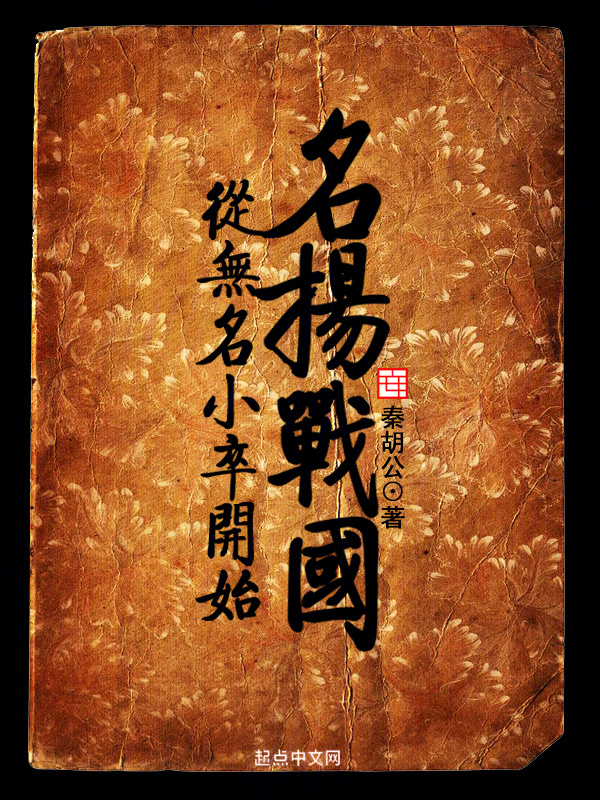 名揚戰國
從無名小卒開始
秦胡公⊙著
起点中文网